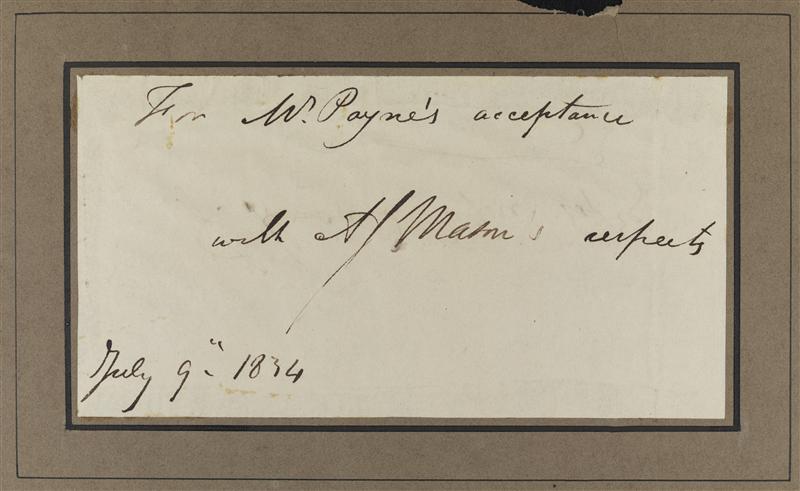 For Mr. Payne's acceptance
with A J Mason's respects
July 9th 1834